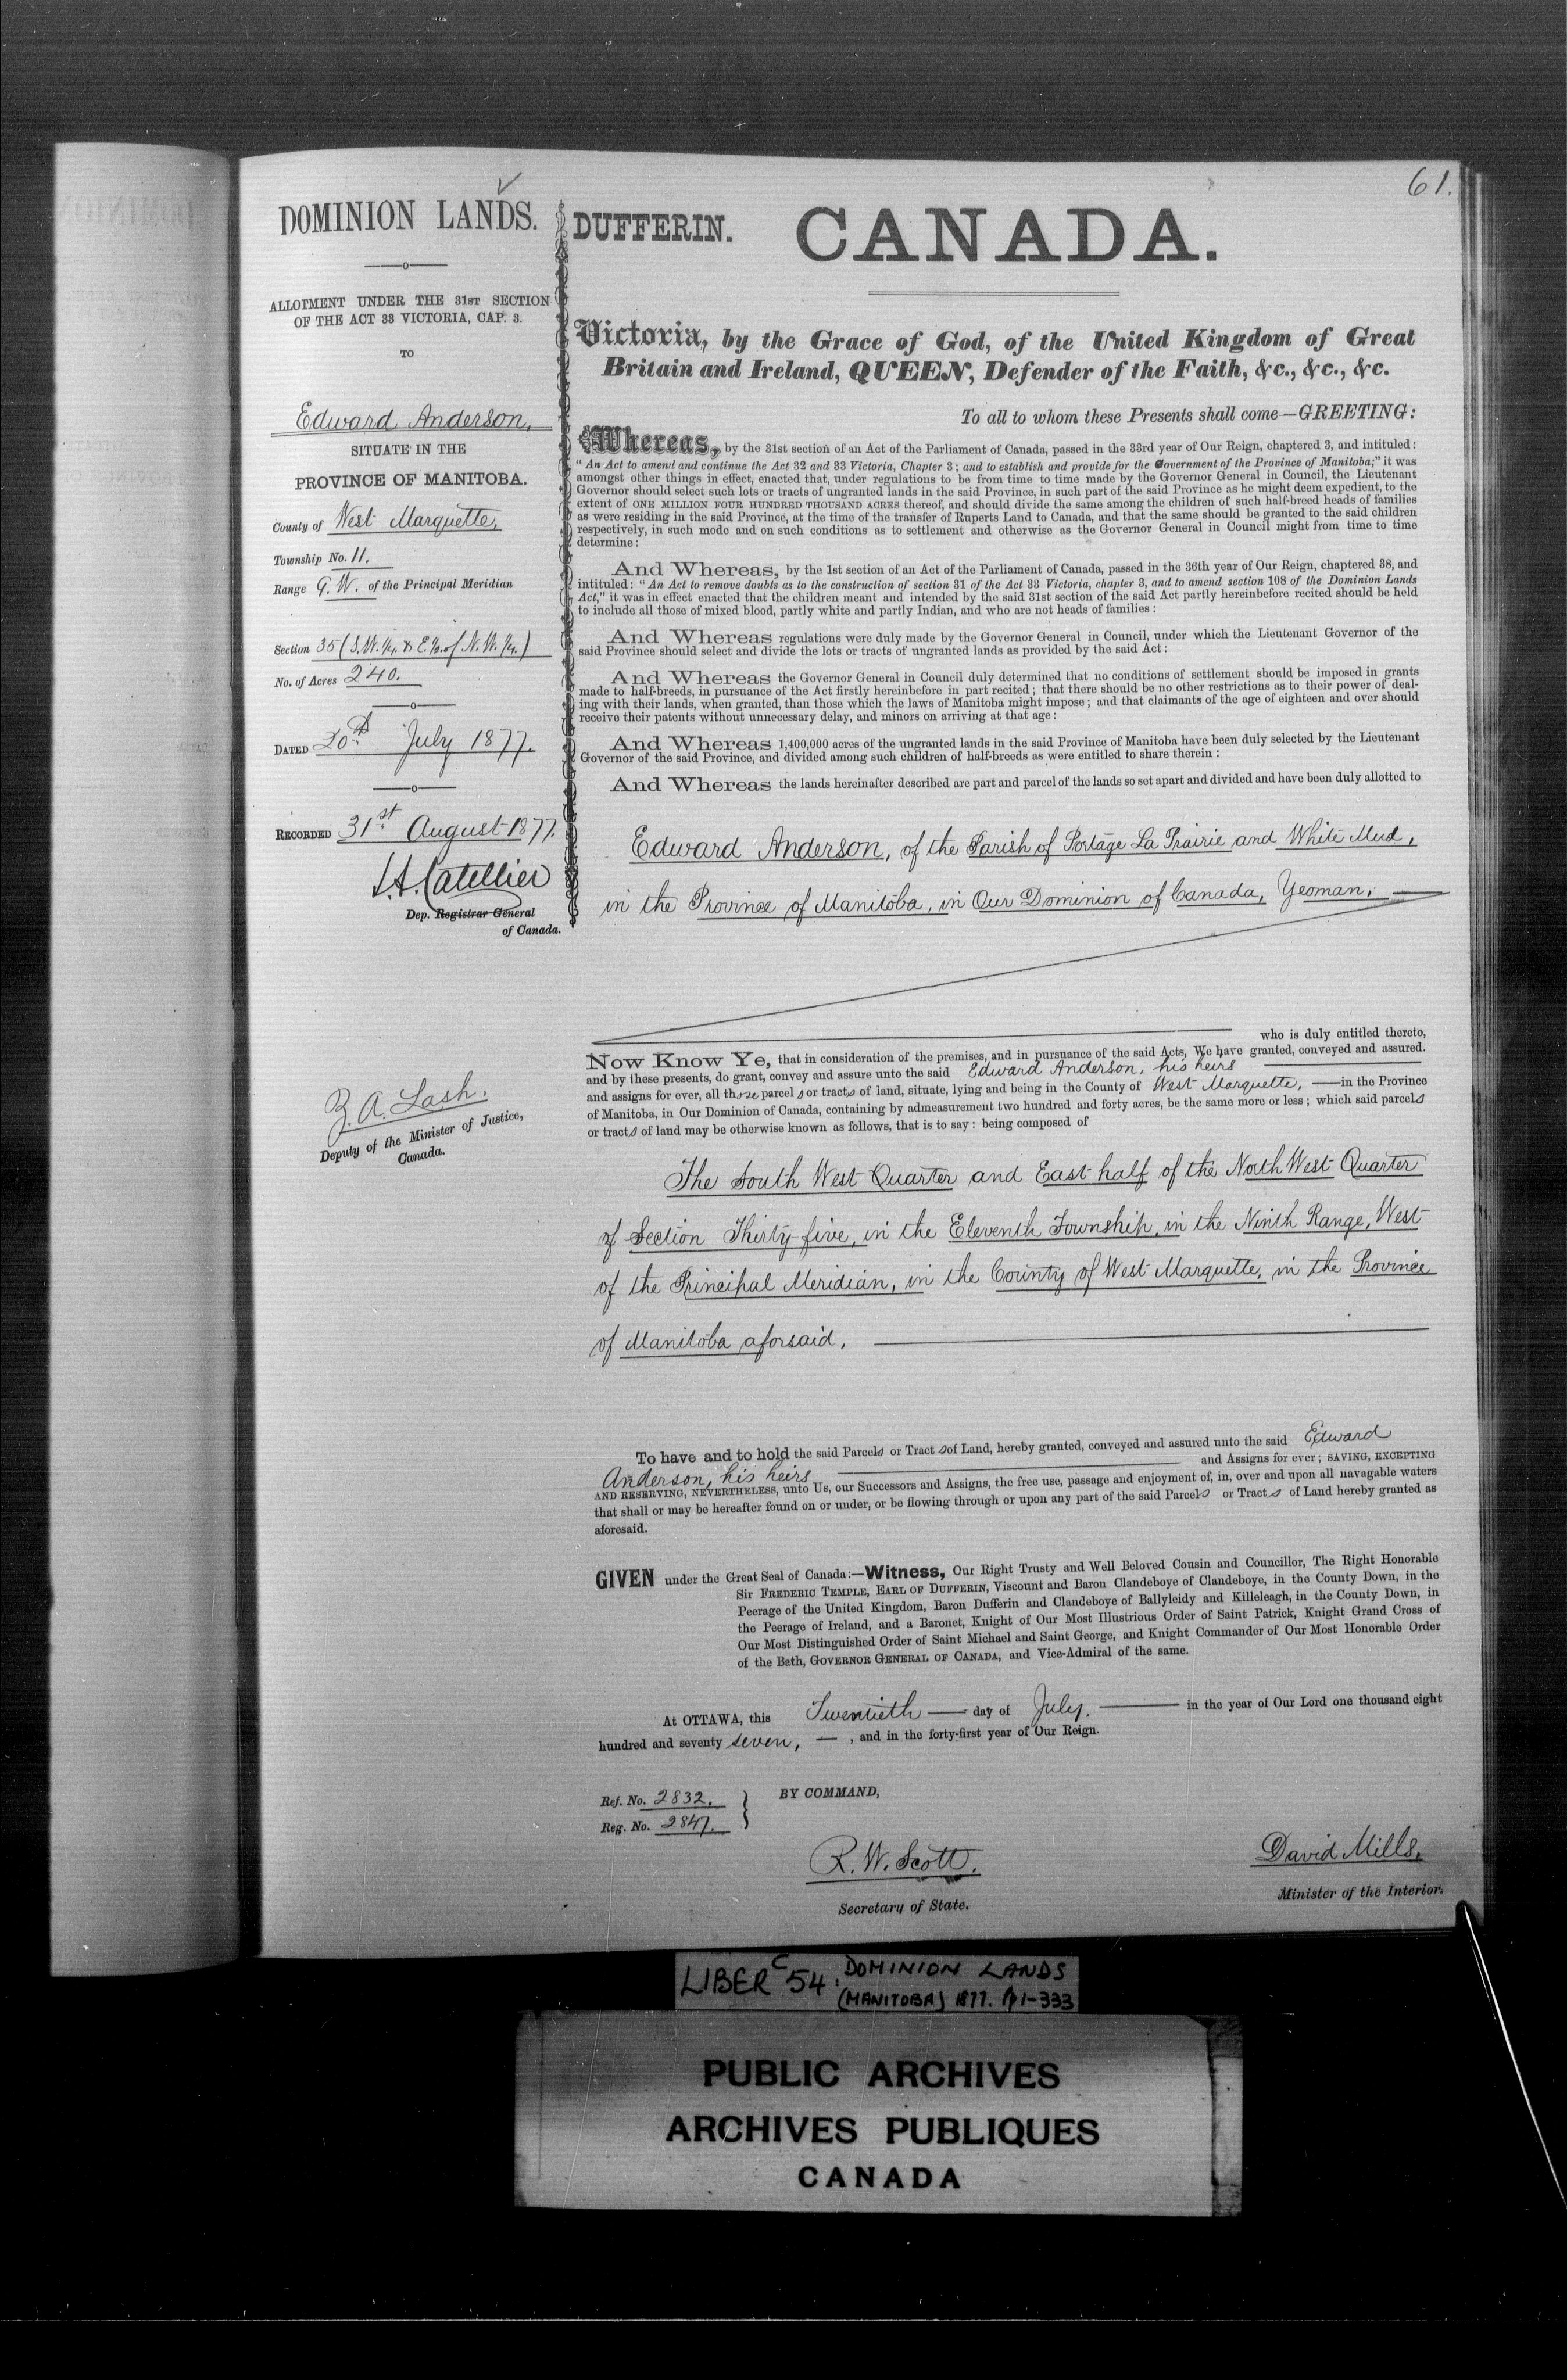 61.
DOMINION LANDS.
ALLOTMENT UNDER THE 31ST SECTION
OF THE ACT 33 VICTORIA, CAP. 3.
TO
Edward Anderson,
SITUATE IN THE
PROVINCE OF MANITOBA.
County of West Marquette,
Township No. 11.
Range 9. W. of the Principal Meridian
Section 35 (S.W. 1/4. & E. 1/2. of N.W. 1/4.)
No. of Acres 240.
DATED 20th July 1877.
RECORDED 31st August 1877.
L.A. Catellier
Dep. Registrar General
of Canada.
Z. A. Lash.
Deputy of the Minister of Justice,
Canada.
DUFFERIN. CANADA.
Victoria, by the Grace of God, of the United Kingdom of Great
Britain and Ireland, QUEEN, Defender of the Faith, &c., &c., &c.
To all to whom these Presents shall come—GREETING:
Whereas, by the 31st section of an Act of the Parliament of Canada, passed in the 33rd year of Our Reign, chaptered 3, and intituled:
"An Act to amend and continue the Act 32 and 33 Victoria, Chapter 3; and to establish and provide for the Government of the Province of Manitoba;" it was
amongst other things in effect, enacted that, under regulations to be from time to time made by the Governor General in Council, the Lieutenant
Governor should select such lots or tracts of ungranted lands in the said Province, in such part of the said Province as he might deem expedient, to the
extent of ONE MILLION FOUR HUNDRED THOUSAND ACRES thereof, and should divide the same among the children of such half-breed heads of families
as were residing in the said Province, at the time of the transfer of Ruperts Land to Canada, and that the same should be granted to the said children
respectively, in such mode and on such conditions as to settlement and otherwise as the Governor General in Council might from time to time
determine:
And Whereas, by the 1st section of an Act of the Parliament of Canada, passed in the 36th year of Our Reign, chaptered 38, and
intituled: "An Act to remove doubts as to the construction of section 31 of the Act 33 Victoria, chapter 3, and to amend section 108 of the Dominion Lands
Act," it was in effect enacted that the children meant and intended by the said 31st section of the said Act partly hereinbefore recited should be held
to include all those of mixed blood, partly white and partly Indian, and who are not heads of families:
And Whereas regulations were duly made by the Governor General in Council, under which the Lieutenant Governor of the
said Province should select and divide the lots or tracts of ungranted lands as provided by the said Act:
And Whereas the Governor General in Council duly determined that no conditions of settlement should be imposed in grants
made to half-breeds, in pursuance of the Act firstly hereinbefore in part recited; that there should be no other restrictions as to their power of deal-
ing with their lands, when granted, than those which the laws of Manitoba might impose; and that claimants of the age of eighteen and over should
receive their patents without unnecessary delay, and minors on arriving at that age:
And Whereas 1,400,000 acres of the ungranted lands in the said Province of Manitoba have been duly selected by the Lieutenant
Governor of the said Province, and divided among such children of half-breeds as were entitled to share therein:
And Whereas the lands hereinafter described are part and parcel of the lands so set apart and divided and have been duly allotted to
Edward Anderson, of the Parish of Portage La Prairie and White Mud,
in the Province of Manitoba, in Our Dominion of Canada, Yeoman,
who is duly entitled thereto,
Now Know Ye, that in consideration of the premises, and in pursuance of the said Acts, We have granted, conveyed and assured.
and by these presents, do grant, convey and assure unto the said Edward Anderson, his heirs
and assigns for ever, all those parcels or tracts of land, situate, lying and being in the County of West Marquette, in the Province
of Manitoba, in Our Dominion of Canada, containing by admeasurement two hundred and forty acres, be the same more or less; which said parcels
or tracts of land may be otherwise known as follows, that is to say: being composed of
The South West Quarter and East half of the North West Quarter
of Section Thirty five, in the Eleventh Township, in the Ninth Range, West
of the Principal Meridian, in the County of West Marquette, in the Province
of Manitoba aforsaid,
To have and to hold the said Parcels or Tracts of Land, hereby granted, conveyed and assured unto the said Edward
Anderson, his heirs and Assigns for ever; SAVING, EXCEPTING
AND RESERVING, NEVERTHELESS, unto Us, our Successors and Assigns, the free use, passage and enjoyment of, in, over and upon all navagable waters
that shall or may be hereafter found on or under, or be flowing through or upon any part of the said Parcels or Tracts of Land hereby granted as
aforesaid.
GIVEN under the Great Seal of Canada:—Witness, Our Right Trusty and Well Beloved Cousin and Councillor, The Right Honorable
Sir FREDERIC TEMPLE, EARL OF DUFFERIN, Viscount and Baron Clandeboye of Clandeboye, in the County Down, in the
Peerage of the United Kingdom, Baron Dufferin and Clandeboye of Ballyleidy and Killeleagh, in the County Down, in
the Peerage of Ireland, and a Baronet, Knight of Our Most Illustrious Order of Saint Patrick, Knight Grand Cross of
Our Most Distinguished Order of Saint Michael and Saint George, and Knight Commander of Our Most Honorable Order
of the Bath, GOVERNOR GENERAL OF CANADA, and Vice-Admiral of the same.
At OTTAWA, this Twentieth — day of July, — in the year of Our Lord one thousand eight
hundred and seventy seven, — , and in the forty-first year of Our Reign.
Ref. No. 2832.
Reg. No. 2847.
BY COMMAND,
R. W. Scott.
Secretary of State.
David Mills,
Minister of the Interior.
LIBER C 54: DOMINION LANDS
(MANITOBA) 1877. Pp 1-333
PUBLIC ARCHIVES
ARCHIVES PUBLIQUES
CANADA